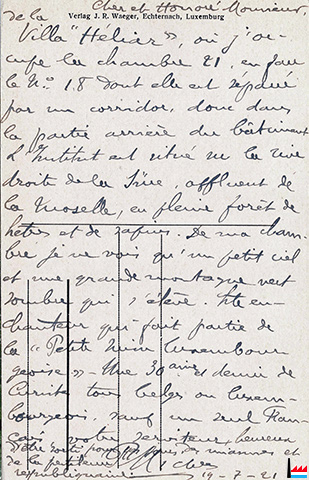 Cher et Honoré Monsieur,
Verlag J. R. Waeger, Echternach, Luxemburg
de la
Villa "Héliar", où j'oc-
cupe la chambre 21, en face
le No. 18 dont elle est séparée
par un corridor, donc dans
la partie arrière du bâtiment
L'Institut est situé sur la rive
droite de la Sûre, affluent de
la Moselle, en pleine forêt de
hêtres et de sapins. De ma cham-
bre je ne vois qu'un petit ciel
et une grande montagne vert
sombre qui s'élève. Site en-
chanteur qui fait partie de
la "Petite Suisse Luxembour-
geoise" - Une 30aine et demie de
Curistes tous belges ou luxem-
bourgeois, sauf un seul Fran-
çais votre serviteur, heureux
d'être sorti pour
de la
républicaine.
19-7-21